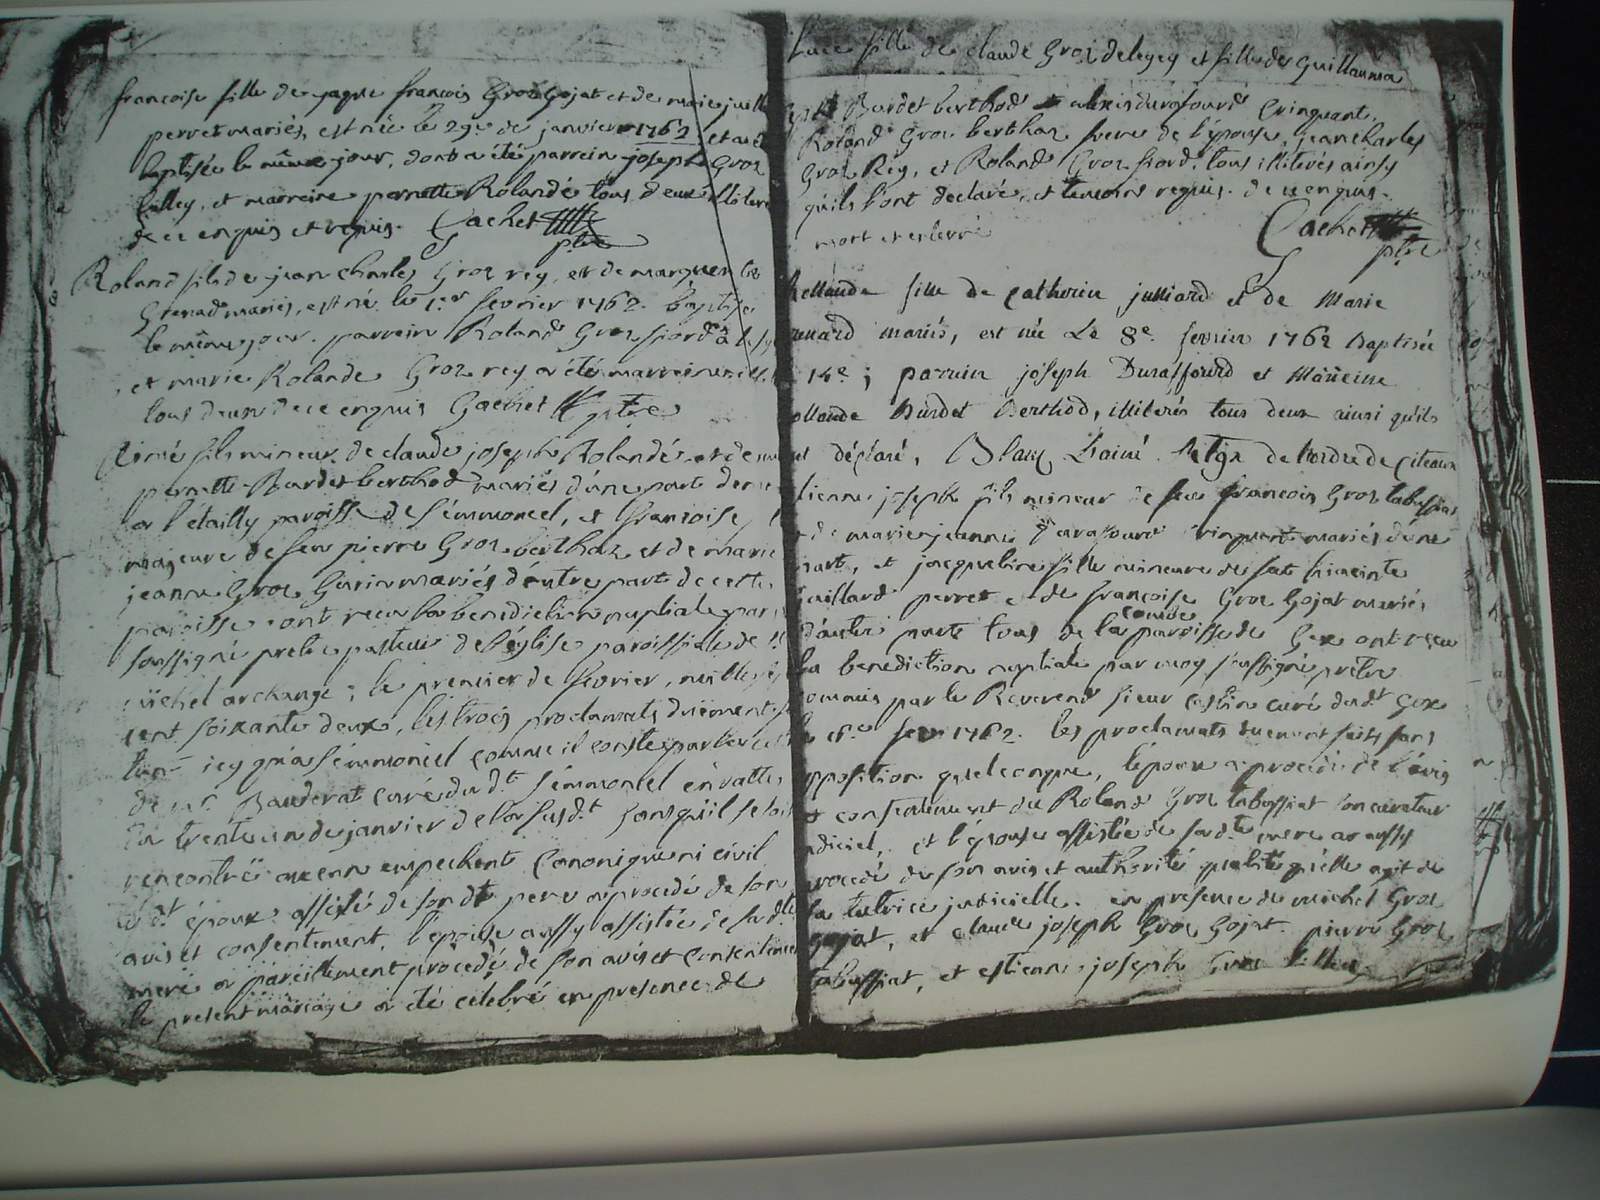 francoise fille de jaque francois Gros Gojat et de marie juill
perret mariés, est née le 29e de janvier 1762 et a été
baptisée le même jour, dont a été parrein joseph Gros
Lilley, et marreine pernette Rolandé tous deux illiteré
de ce enquis et requis. Cachet ptre
Roland fils de jean charles Gros rey, et de marguerite
Grenard mariés, est né le 1er fevrier 1762. baptisé
le même jour. parrein Roland Gros fiord
et marie Rolande Gros rey a été marreine
tous deux de ce enquis Cachet ptre
Aimé fils mineur de claude joseph Rolandé et de
pernette Burdet berthod mariés d'une part de
a l'étailly paroisse de Semmoncel, et francoise
majeure de feu pierre Gros berthaz et de marie
jeanne Gros Gurin mariés d'autre part de cette
paroisse ont recu la benediction nuptiale par
soussigné pretre pasteur de l'église paroissiale de St
michel archange; le premier de fevrier, mille sept
cent soixante deux, les trois proclamats duëment
tant icy qu'a Semmoncel comme il conste par
de mr. Bauderat curé du dt Semmoncel en datte
du trente un de janvier de l'an susdt. sans qu'il se soit
rencontré aucun empechent canonique ni civil
le dt époux assisté de son dt pere a procedé de son
avis et consentement, l'epouse aussy assistée de sa dte
mere a pareillement procedé de son avis et consentement
le present mariage a été celebré en presence de
Luce fille de claude Gros delegey et fille de Guillauma
Burdet berthod alexis durafourd Crinquant,
Roland Gros berthaz frere de l'épouse, jean charles
Gros Rey, et Roland Gros fiord, tous illiterés ainsy
qu'ils l'ont declaré, et temoins requis. de ce enquis.
Cachet ptre
mort et enterré
Rollande fille de Catherin julliard et de Marie
renard mariés, est née Le 8e. fevrier 1762 Baptisée
14e; parrain joseph Duraffourd et Marreine
ollande Burdet Berthod, illiterés tous deux ainsi qu'ils
ont déclaré, Blanc L'ainé Relgx de l'ordre de Citeaux
tienne joseph fils mineur de feu francois Gros tabussiat
de marie jeanne durafourd Crinquant mariés d'une
part, et jacqueline fille mineure de fut hiacinte
juillard perret et de francoise Gros Gojat mariés
d'autre part tous de la paroisse de Gex ont reçu
la benediction nuptiale par moy soussigné prêtre
commis par le Reverend sieur Castin curé dudt Gex
le 16e fevr 1762. les proclamats duement faits sans
opposition quelconque, l'époux a procédé de l'avis
et consentement de Roland Gros tabussiat son curateur
judiciel, et l'épouse assistée de sa dte mere a aussy
procedé de son avis et authorité qualité qu'elle agit de
sa tutrice judicielle. en presence de michel Gros
gojat, et claude joseph Gros Gojat. pierre Gros
tabussiat, et estienne joseph Gros Lilley